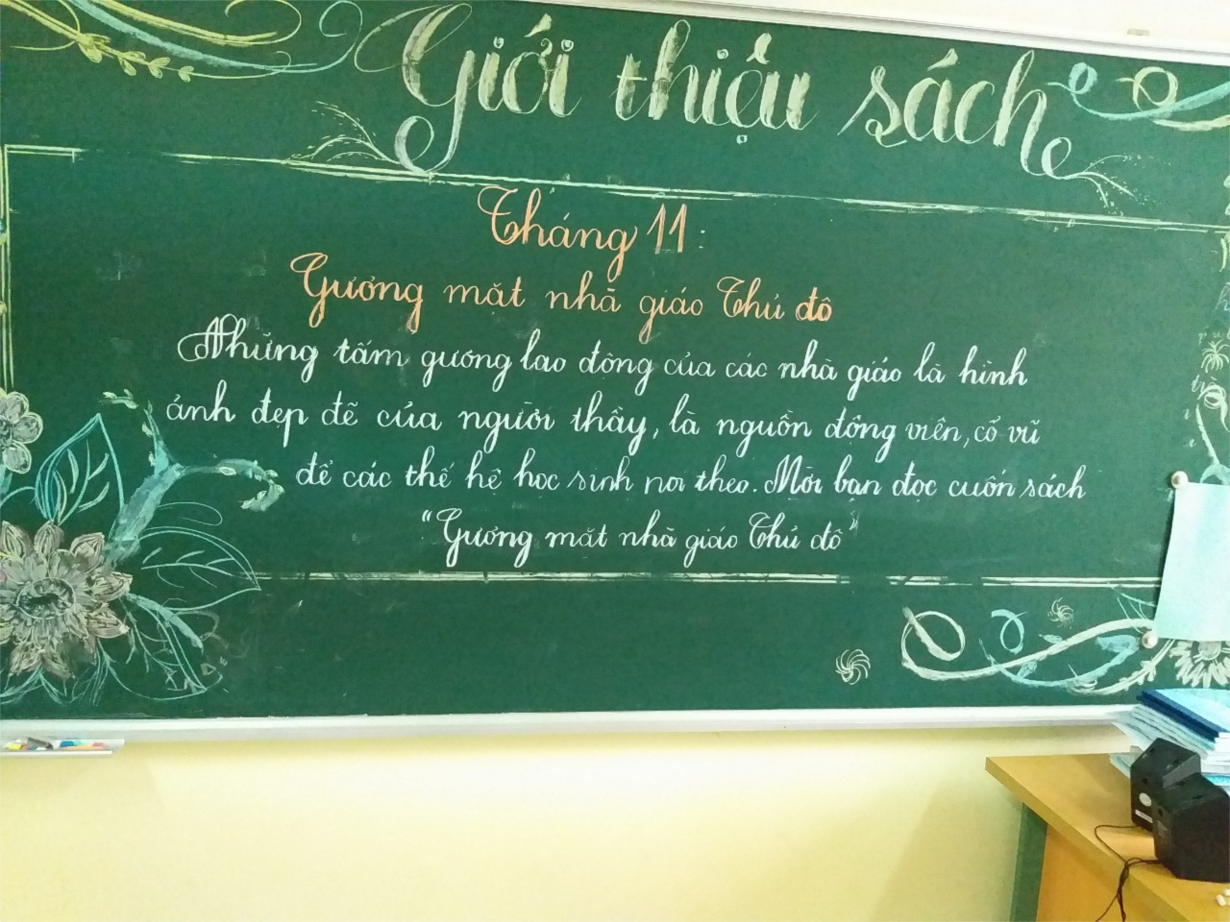 Giới thiệu sách
Tháng 11:
Gương mặt nhà giáo Thủ đô
Những tấm gương lao động của các nhà giáo là hình
ảnh đẹp đẽ của người thầy, là nguồn động viên, cổ vũ
để các thế hệ học sinh noi theo. Mời bạn đọc cuốn sách
"Gương mặt nhà giáo Thủ đô"